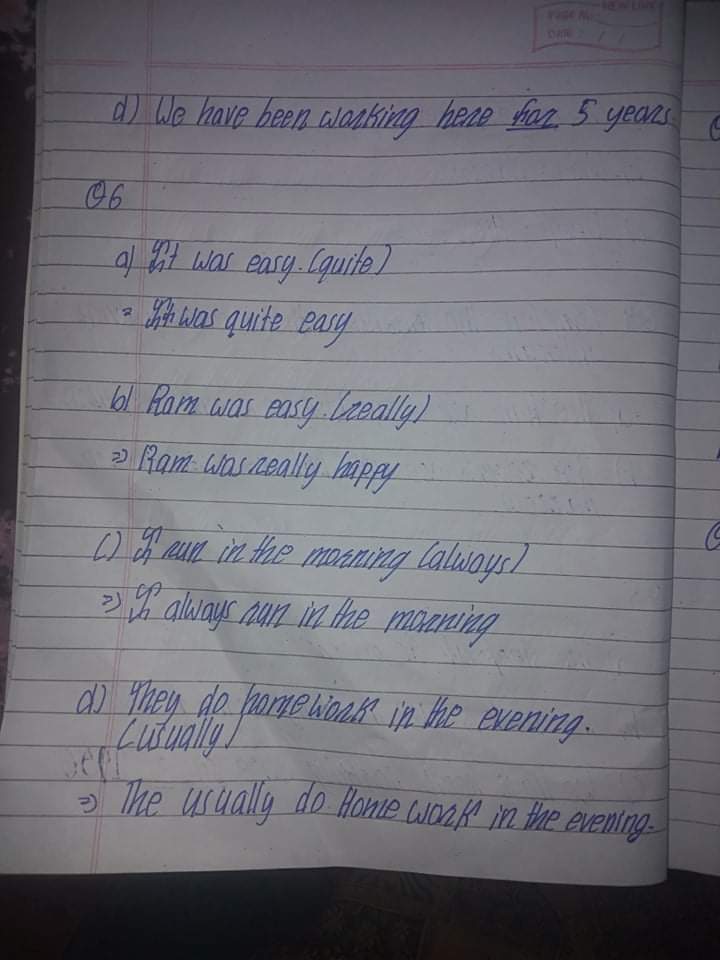 NEW LINK
PAGE NO.
DATE : / /
d) We have been working here for 5 years.
Q6
a) It was easy. (quite)
= It was quite easy
b) Ram was easy. (really)
=> Ram was really happy
c) I run in the morning (always)
=> I always run in the morning
d) They do homework in the evening.
(usually)
=> The usually do Home work in the evening.